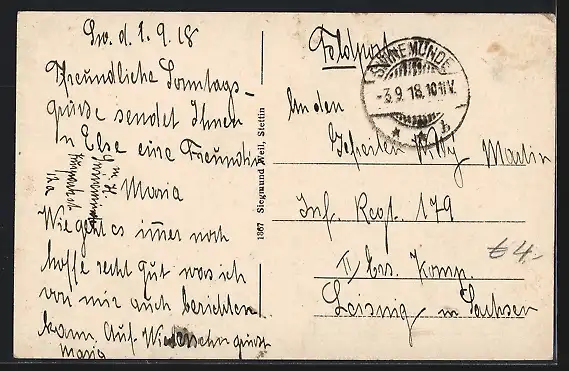 Sw. d. 1.9.18
Freundliche Sonntags-
grüße sendet Ihnen
u Else eine Freundin
Maria
Wie geht es immer noch
hoffe recht gut was ich
von mir auch berichten
kann. Auf Wiedersehn grüßt
Maria
1367 Siegmund Weil, Stettin
Feldpost
SWINEMÜNDE
-3.9.18.10-11V.
* * b
An den
Gefreiten Willy Martin
Inf. Regt. 179
II Ers. Komp.
Leisnig in Sachsen
64.-